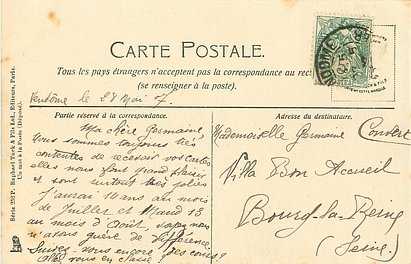 CARTE POSTALE.
Tous les pays étrangers n'acceptent pas la correspondance au recto
(se renseigner à la poste).
Vendôme le 28 Mai 07.
Partie réservée à la correspondance.
Adresse du destinataire.
Ma chère Germaine,
Nous sommes toujours très
contentes de recevoir vos cartes
elles nous font grand plaisir
et sont surtout très jolies
J'aurai 11 ans au mois
de Juillet et Maud 13
au mois d'Août, nous
n'avons guère de différence.
Suivez-vous encore des cours?
en classe
Mademoiselle Germaine Convert
Villa Bon Accueil
Bourg-la-Reine
(Seine)
Série 252 P. Raphael Tuck & Fils Ltd., Editeurs, Paris.
VENDOME